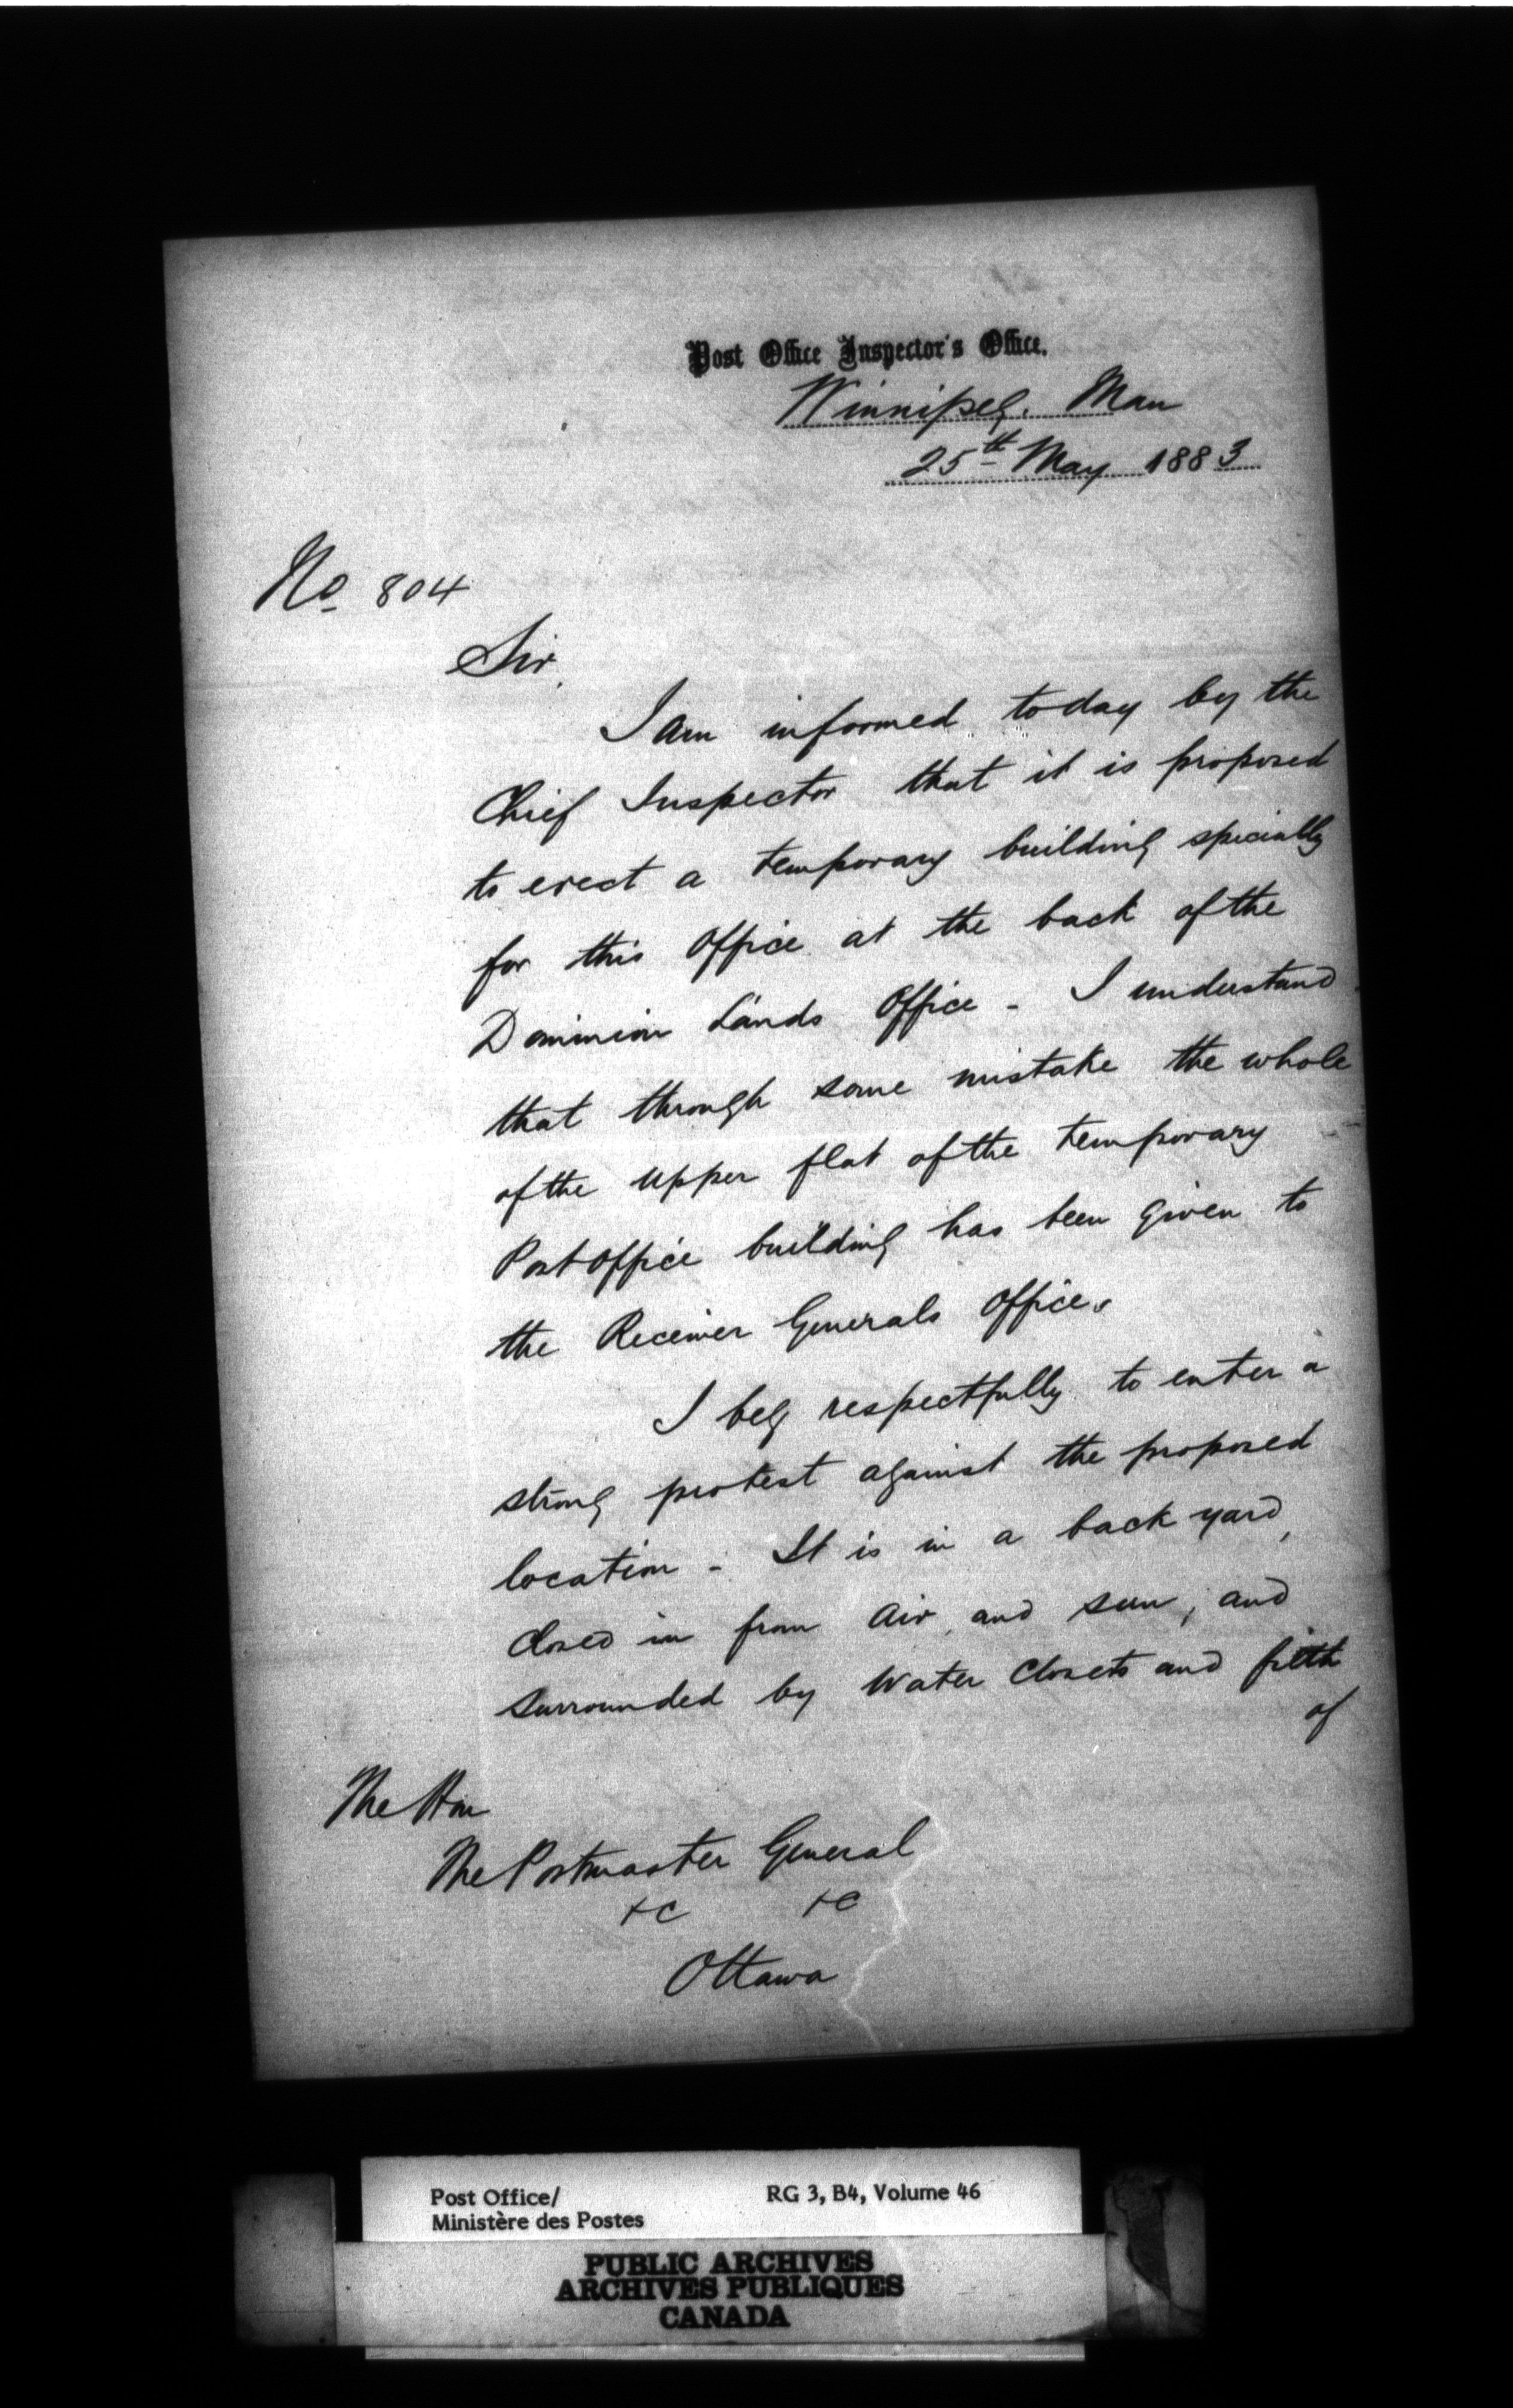 Post Office Inspector's Office.
Winnipeg. Man
25th May 1883
No 804
Sir,
I am informed today by the
Chief Inspector that it is proposed
to erect a temporary building specially
for this Office at the back of the
Dominion Lands Office - I understand
that through some mistake the whole
of the upper flat of the temporary
Post Office building has been given to
the Receiver Generals Office.
I beg respectfully to enter a
strong protest against the proposed
location - It is in a back yard,
closed in from air, and sun, and
surrounded by Water Closets and filth
of
The Hon
The Postmaster General
&c &c
Ottawa
Post Office/
Ministère des Postes
RG 3, B4, Volume 46
PUBLIC ARCHIVES
ARCHIVES PUBLIQUES
CANADA